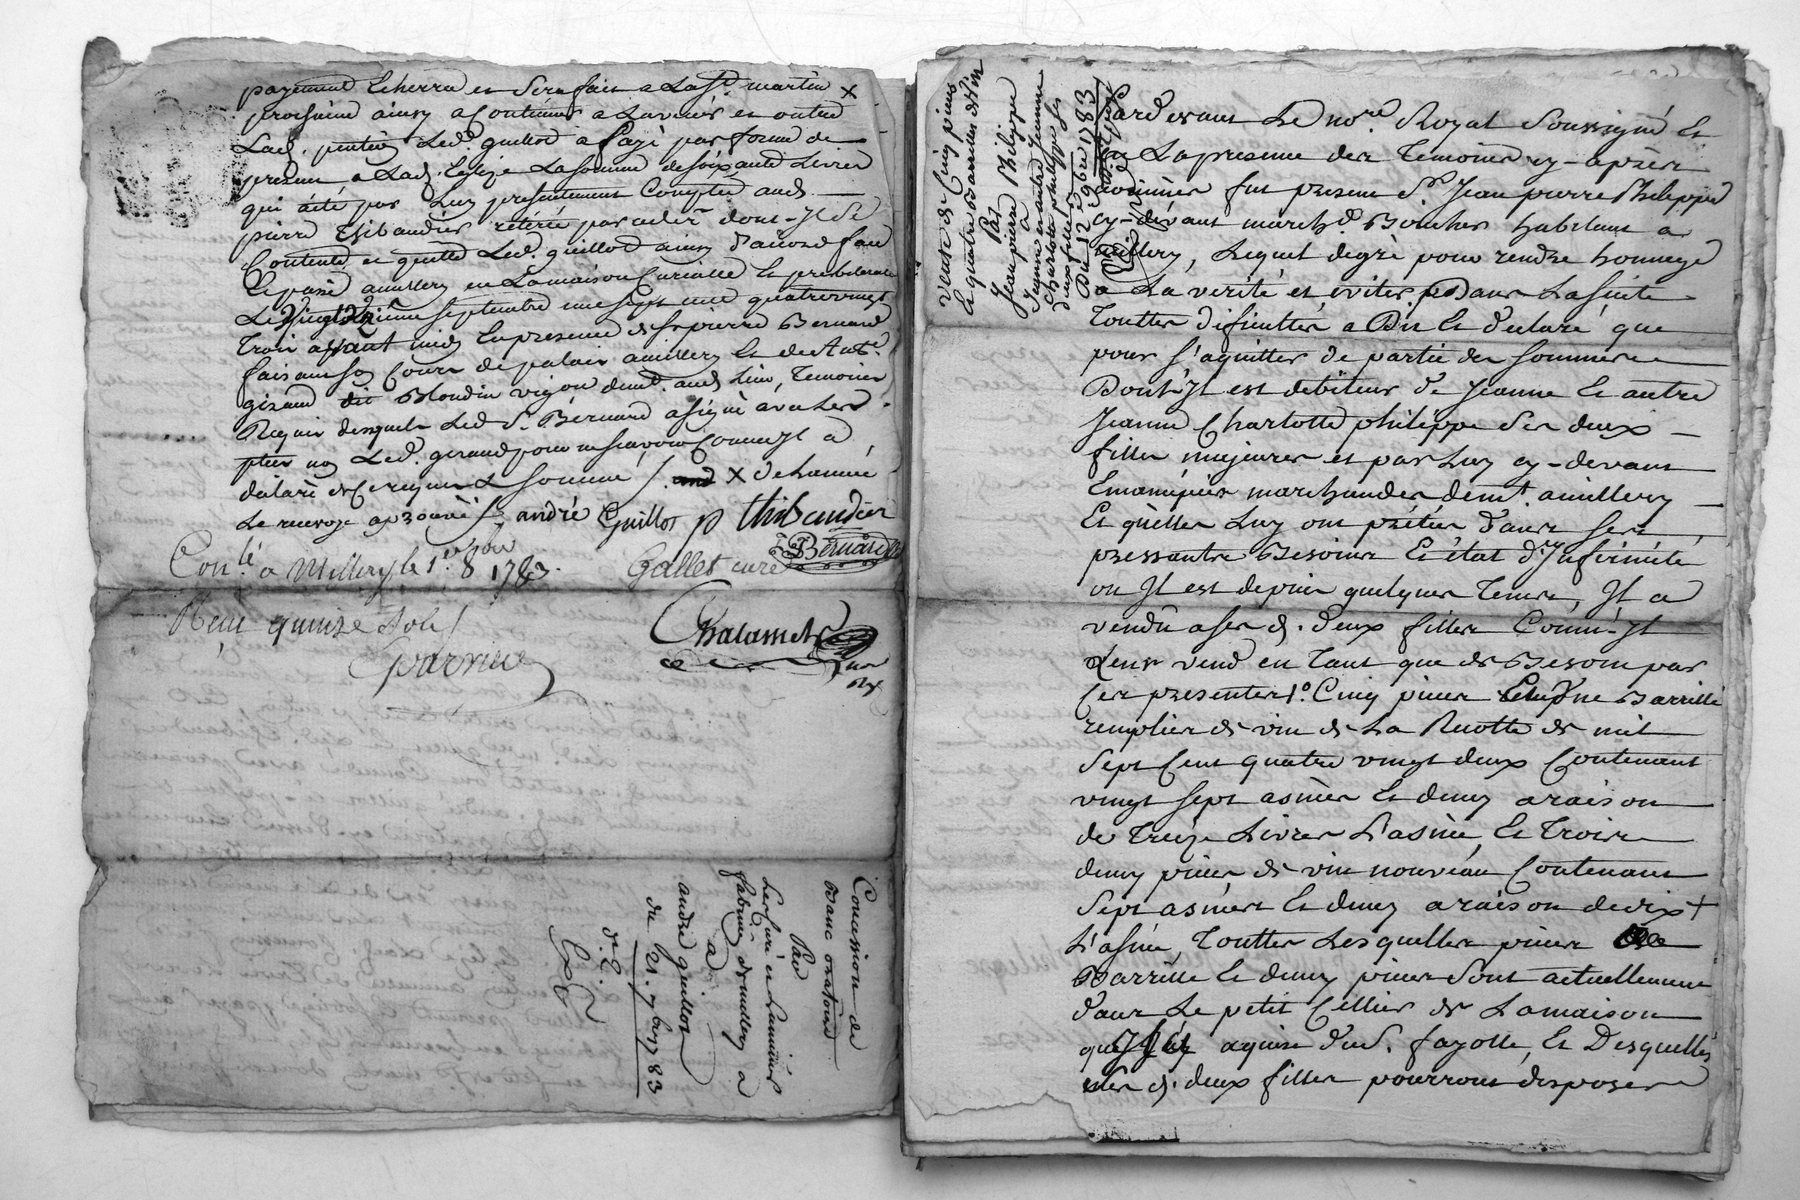 payement Echerra et Sera fait a La St. martin x
prochaine ainsy a Continuer a Lavenir et outre
Lad. pention Led. guillot a payé par forme de
présent a Lad. Eglize La Somme de soixante Livres
qui a été par Luy présentement Comptée aud.
pierre thibaudier retirée par celuicy dont Il Se
Contente et quitte Led. guillot ainsy d'acord fait
Et passé amillery en La maison Curialle Et presbiterale
Le Vingt unieme Septembre mil Sept cent quatrevingt
Trois avant midy En presence de Sr. pierre Bernard
faisant Son Cours de palais amillery Et de Ant.
giraud dit Blondin vig.on dem.t aud. Lieu, Temoins
Requis desquels Led. Sr. Bernard a signé avec Les
pties non Led. giraud pour ne scavoir Comme Il a
déclaré de Ce requis & Sommé /. x de L'année
Le renvoye aprouvé /. andré Guillot p thibaudier
Bernard
Gallet curé
Con.lé a Millery le 1er. 8bre 1783.
Reçu quinze Sols /
Chalamel
Concession de
banc oratoire
Par
Les Curé et Luminiers
fabrice de millery a
a
andré guillot
du 21. 7bre 1783
Vente de Cinq pieces
Et quatre Barrilles de Vin
Par
Jean pierre Philippe
a
Jeanne et autre Jeanne
Charlotte philippe Ses
deux filles
Du 12 9bre 1783
Pardevant Le no.re Royal Soussigné Et
En La presence des Temoins cy-après
nommés fut present Sr. Jean pierre Philippe
cy-devant march.d Boucher habitant a
millery, Lequel degré pour rendre hommage
a La verité et eviter dans La Suite
Touttes dificultés a Dit Et declaré que
pour S'aquitter de partie des Sommes
Dont Il est debiteur a Jeanne Et autre
Jeanne Charlotte philippe Ses deux
filles majeures et par Luy cy-devant
Emancipées marchandes dem.t amillery
Et qu'elles Luy ont prétées dans Ses
pressants Besoins Et état d'Infirmité
ou Il est depuis quelques Tems, Il a
vendu a Ses d. deux filles Comm'Il
Leur vend en Tant que de Besoin par
Ces presentes 1°. Cinq pieces Et Une Barrille
remplies de vin de La Recolte de mil
Sept Cent quatre vingt deux Contenant
vingt Sept asnées Et demy araison
de Treize Livres L'asnée, Et Trois
demy pieces de vin nouveau Contenant
Sept asnées Et demy araison de dix +
L'asnée, Touttes Lesquelles pieces
Barrille Et demy pieces Sont actuellement
dans Le petit Cellier de La maison
qu'Il a aquise du S. fayolle, Et Desquelles
Ses d. deux filles pourront disposer